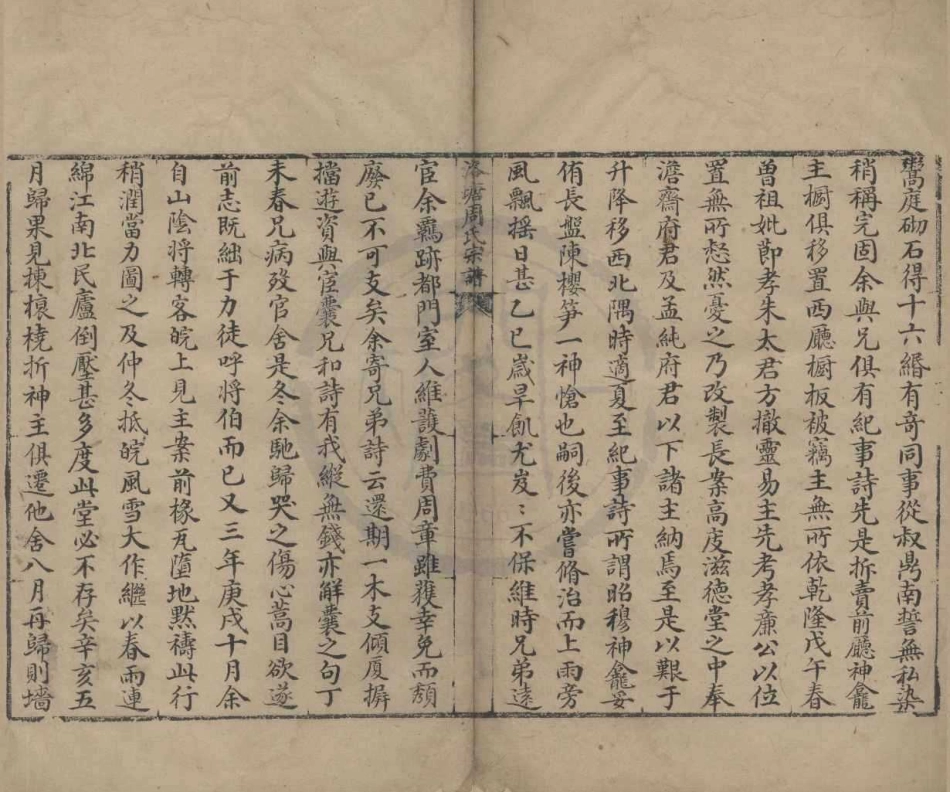 鬻庭砌石得十六緡有奇同事從叔鼎南誓無私染
稍稱完固余與兄俱有紀事詩先是折賣前廳神龕
主橱俱移置西廳橱板被竊主無所依乾隆戊午春
曾祖妣節孝朱太君方撤靈易主先考孝廉公以位
置無所愁然憂之乃改製長案高庋滋德堂之中奉
澹齋府君及孟純府君以下諸主納焉至是以艱于
升降移西北隅時適夏至紀事詩所謂昭穆神龕妥
侑長盤陳櫻笋一神愴也嗣後亦嘗脩治而上雨旁
風飄摇日甚乙巳嵗旱飢尤岌〻不保維時兄弟遠
洛塘周氏宗譜
宦余羈跡都門室人維護劇費周章雖獲幸免而頽
廢已不可支矣余寄兄弟詩云還期一木支傾厦摒
擋遊資與宦囊兄和詩有我縱無錢亦解囊之句丁
未春兄病歿官舍是冬余馳歸哭之傷心蒿目欲遂
前志既絀于力徒呼將伯而已又三年庚戌十月余
自山陰將轉客皖上見主案前椽瓦墮地默禱此行
稍潤當力圖之及仲冬抵皖風雪大作繼以春雨連
綿江南北民廬倒壓甚多度此堂必不存矣辛亥五
月歸果見揀榱橈折神主俱遷他舍八月再歸則墻